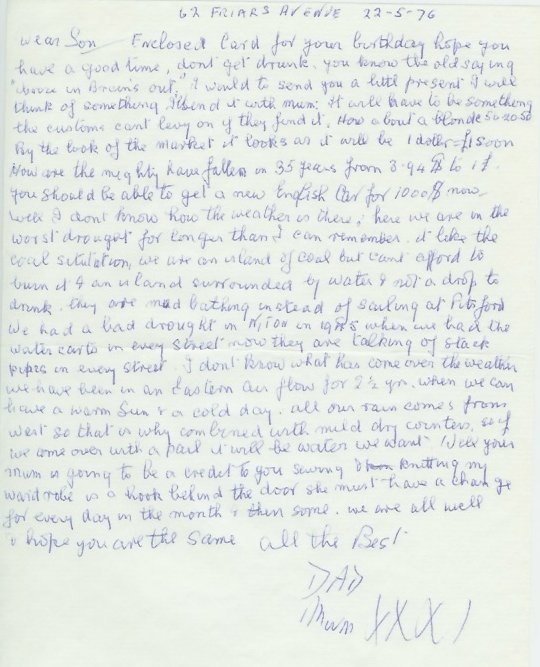 62 FRIARS AVENUE 22-5-76
Dear Son Enclosed Card for your birthday hope you
have a good time, dont get drunk. you know the old saying
in Brains out", I would to send you a little present I will
think of something I'll send it with mum. It will have to be something
the customs cant levy on if they find it. How about a blonde 50-20-50
By the look of the market it looks as it will be 1 doller = £1 soon
How are the mighty have fallen in 35 years from 3.94 $ to 1 £.
you should be able to get a new English Car for 1000 $ now.
Well I dont know how the weather is there, here we are in the
worst drought for longer than I can remember. it like the
coal situtation, we are an island of coal but cant afford to
burn it & an island surrounded by water & not a drop to
drink. they are mud bathing instead of sailing at Pitsford
we had a bad drought in N,Ton in when we had the
water carts in every street now they are talking of stack
pipes in every street. I don't know what has come over the weather
we have been in an Eastern air flow for 2½ yrs. when we can
have a warm Sun & a cold day. all our rain comes from
west so that is why combined with mild dry winters. so if
we come over with a pail it will be water we want. Well your
mum is going to be a credit to you sewing & knitting my
wardrobe is a hook behind the door she must have a change
for every day in the month & then some. we are all well
& hope you are the same all the Best
DAD
Mum XXX